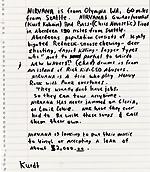 NIRVANA is from Olympia WA, 60 miles
from Seattle. NIRVANAS Guitar/vocalist
(Kurt Kobain) and Bass-(Chris Novoselic) lived
in Aberdeen 150 miles from Seattle.
Aberdeens population consists of highly
bigoted Redneck-snoose chewing-deer
shooting, faggot killing, logger types
who "ain't to partial to weirdo
New wavers". (Chad) drummer is from
an island of Rich kid LSD Abusers.
NIRVANA is a trio who play Heavy
Rock with Punk overtones.
They usually dont have jobs.
So they can tour anytime.
NIRVANA has never jammed on Gloria,
or Louie Louie. Nor have they ever
had to Re write these songs & call
them their own.
NIRVANA is looking to put their music
to Vinyl or accepting a loan of
about $
Kurdt